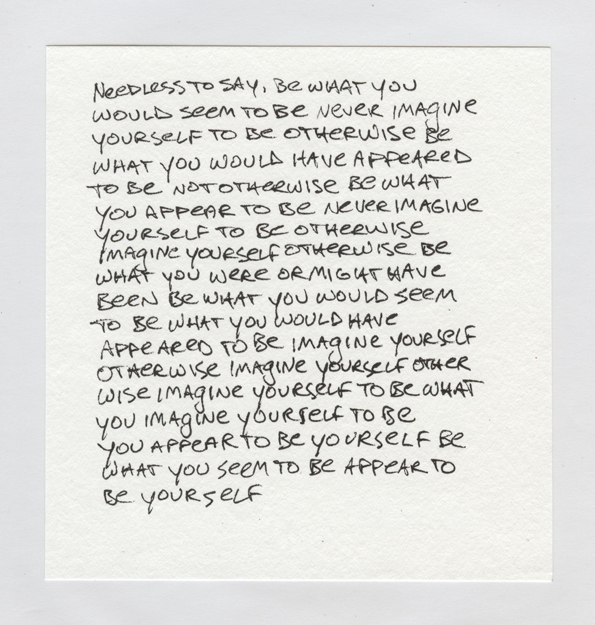 NEEDLESS TO SAY, BE WHAT YOU
WOULD SEEM TO BE NEVER IMAGINE
YOURSELF TO BE OTHERWISE BE
WHAT YOU WOULD HAVE APPEARED
TO BE NOT OTHERWISE BE WHAT
YOU APPEAR TO BE NEVER IMAGINE
YOURSELF TO BE OTHERWISE
IMAGINE YOURSELF OTHERWISE BE
WHAT YOU WERE OR MIGHT HAVE
BEEN BE WHAT YOU WOULD SEEM
TO BE WHAT YOU WOULD HAVE
APPEARED TO BE IMAGINE YOURSELF
OTHERWISE IMAGINE YOURSELF OTHER
WISE IMAGINE YOURSELF TO BE WHAT
YOU IMAGINE YOURSELF TO BE
YOU APPEAR TO BE YOURSELF BE
WHAT YOU SEEM TO BE APPEAR TO
BE YOURSELF